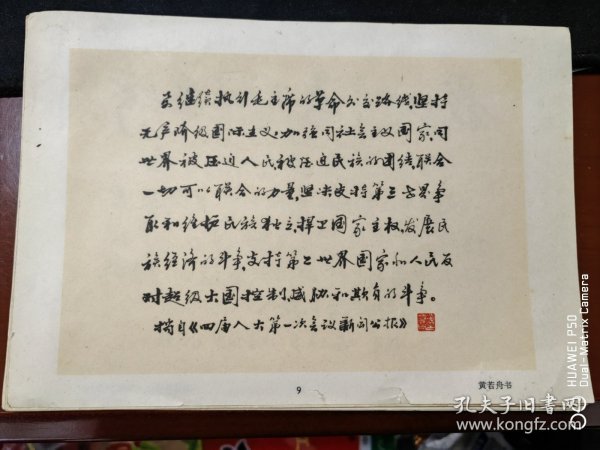 要继续执行毛主席的革命外交路线,坚持
无产阶级国际主义,加强同社会主义国家、同
世界被压迫人民被压迫民族的团结,联合
一切可以联合的力量,坚决支持第三世界争
取和维护民族独立、捍卫国家主权、发展民
族经济的斗争,支持第二世界国家和人民反
对超级大国控制、威胁和欺负的斗争。
摘自《四届人大第一次会议新闻公报》
9
黄若舟书
HUAWEI P50
Dual-Matrix Camera
孔夫子旧书网
www.kongfz.com